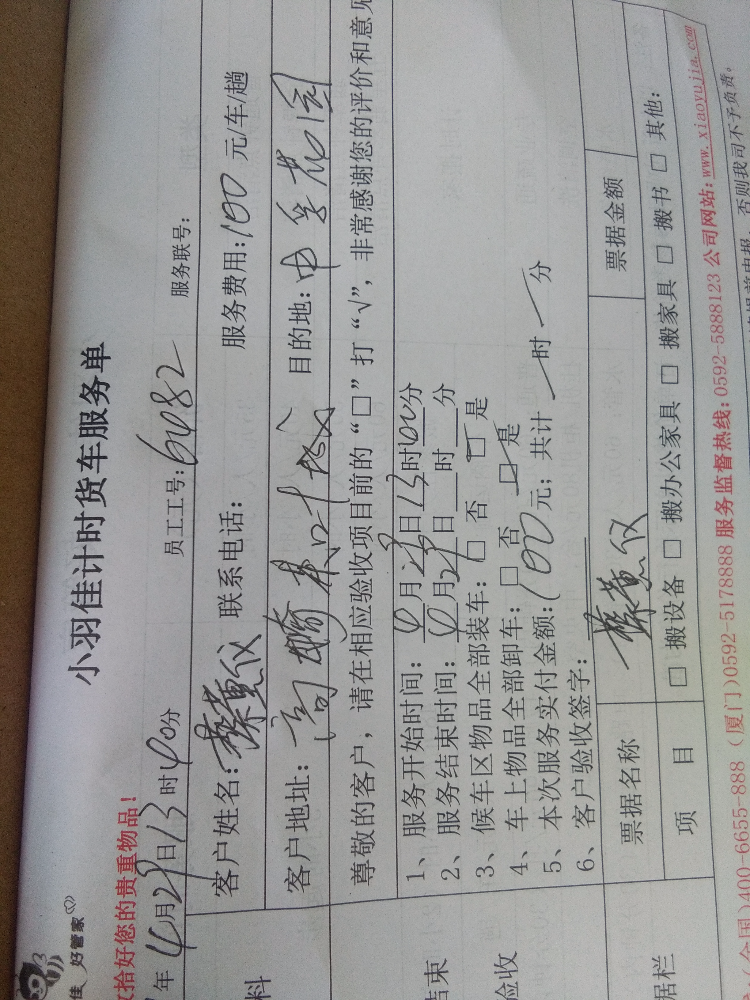 小羽佳计时货车服务单
好管家
收拾好您的贵重物品!
年4月29日13时40分 员工工号:6482 服务联号:
客户姓名: 联系电话: 服务费用:100元/车/趟
客户地址: 目的地:中孚花园
尊敬的客户,请在相应验收项目前的“□”打“√”,非常感谢您的评价和意见
1、服务开始时间:4月29日13时00分
2、服务结束时间:4月29日 时 分
3、候车区物品全部装车:□否 □是
4、车上物品全部卸车:□否 □是
5、本次服务实付金额:100元;共计 时 分
6、客户验收签字:
票据名称 票据金额
项 目 □搬设备 □搬办公家具 □搬家具 □搬书 □其他:
料
结束
验收
据栏
全国)400-6655-888(厦门)0592-5178888 服务监督热线:0592-5888123 公司网站:www.xiaoyujia.com
否则我司不予负责。